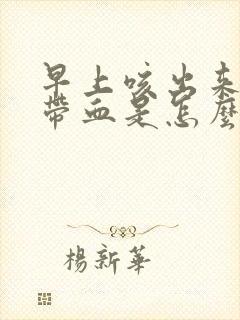 早上咳出来
带血是怎麼
楊新華